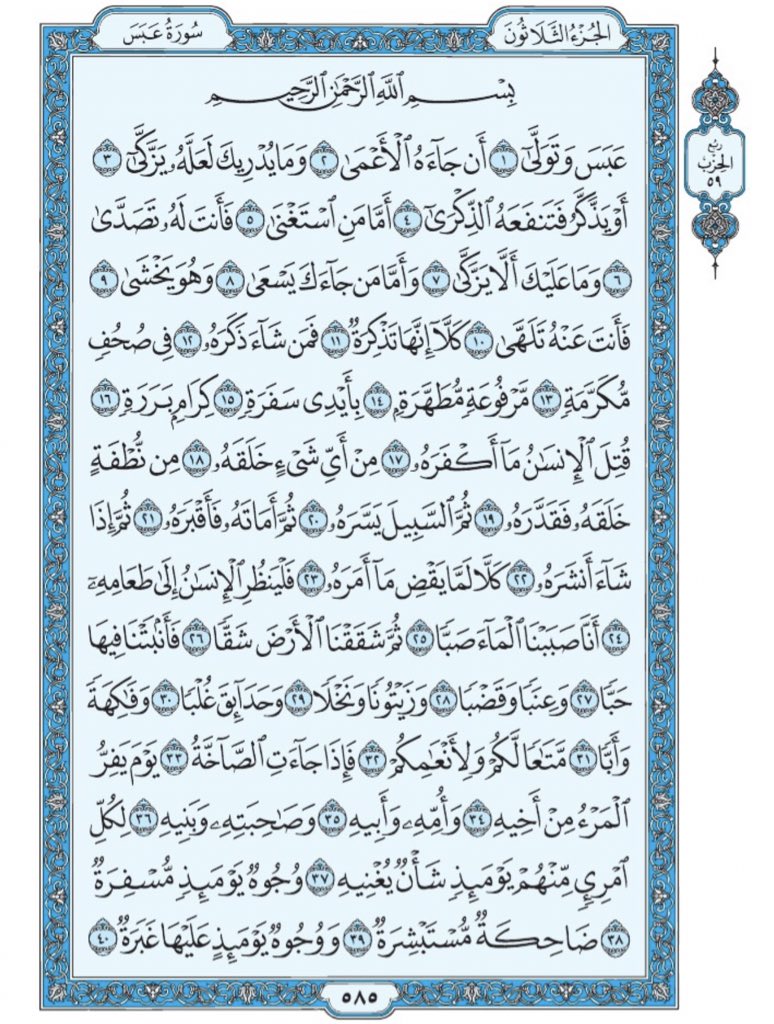 سُورَةُ عَبَسَ
الجُزْءُ الثَّلَاثُونَ
رُبْع
الحِزْب
٥٩
بِسْمِ ٱللَّهِ ٱلرَّحْمَٰنِ ٱلرَّحِيمِ
عَبَسَ وَتَوَلَّىٰٓ ١ أَن جَآءَهُ ٱلْأَعْمَىٰ ٢ وَمَا يُدْرِيكَ لَعَلَّهُۥ يَزَّكَّىٰٓ ٣
أَوْ يَذَّكَّرُ فَتَنفَعَهُ ٱلذِّكْرَىٰٓ ٤ أَمَّا مَنِ ٱسْتَغْنَىٰ ٥ فَأَنتَ لَهُۥ تَصَدَّىٰ
٦ وَمَا عَلَيْكَ أَلَّا يَزَّكَّىٰ ٧ وَأَمَّا مَن جَآءَكَ يَسْعَىٰ ٨ وَهُوَ يَخْشَىٰ ٩
فَأَنتَ عَنْهُ تَلَهَّىٰ ١٠ كَلَّآ إِنَّهَا تَذْكِرَةٌ ١١ فَمَن شَآءَ ذَكَرَهُۥ ١٢ فِى صُحُفٍ
مُّكَرَّمَةٍ ١٣ مَّرْفُوعَةٍ مُّطَهَّرَةٍۭ ١٤ بِأَيْدِى سَفَرَةٍ ١٥ كِرَامٍۭ بَرَرَةٍ ١٦
قُتِلَ ٱلْإِنسَٰنُ مَآ أَكْفَرَهُۥ ١٧ مِنْ أَىِّ شَىْءٍ خَلَقَهُۥ ١٨ مِن نُّطْفَةٍ
خَلَقَهُۥ فَقَدَّرَهُۥ ١٩ ثُمَّ ٱلسَّبِيلَ يَسَّرَهُۥ ٢٠ ثُمَّ أَمَاتَهُۥ فَأَقْبَرَهُۥ ٢١ ثُمَّ إِذَا
شَآءَ أَنشَرَهُۥ ٢٢ كَلَّا لَمَّا يَقْضِ مَآ أَمَرَهُۥ ٢٣ فَلْيَنظُرِ ٱلْإِنسَٰنُ إِلَىٰ طَعَامِهِۦٓ
٢٤ أَنَّا صَبَبْنَا ٱلْمَآءَ صَبًّا ٢٥ ثُمَّ شَقَقْنَا ٱلْأَرْضَ شَقًّا ٢٦ فَأَنۢبَتْنَا فِيهَا
حَبًّا ٢٧ وَعِنَبًا وَقَضْبًا ٢٨ وَزَيْتُونًا وَنَخْلًا ٢٩ وَحَدَآئِقَ غُلْبًا ٣٠ وَفَٰكِهَةً
وَأَبًّا ٣١ مَّتَٰعًا لَّكُمْ وَلِأَنْعَٰمِكُمْ ٣٢ فَإِذَا جَآءَتِ ٱلصَّآخَّةُ ٣٣ يَوْمَ يَفِرُّ
ٱلْمَرْءُ مِنْ أَخِيهِ ٣٤ وَأُمِّهِۦ وَأَبِيهِ ٣٥ وَصَٰحِبَتِهِۦ وَبَنِيهِ ٣٦ لِكُلِّ
ٱمْرِئٍ مِّنْهُمْ يَوْمَئِذٍ شَأْنٌ يُغْنِيهِ ٣٧ وُجُوهٌ يَوْمَئِذٍ مُّسْفِرَةٌ
٣٨ ضَاحِكَةٌ مُّسْتَبْشِرَةٌ ٣٩ وَوُجُوهٌ يَوْمَئِذٍ عَلَيْهَا غَبَرَةٌ ٤٠
٥٨٥